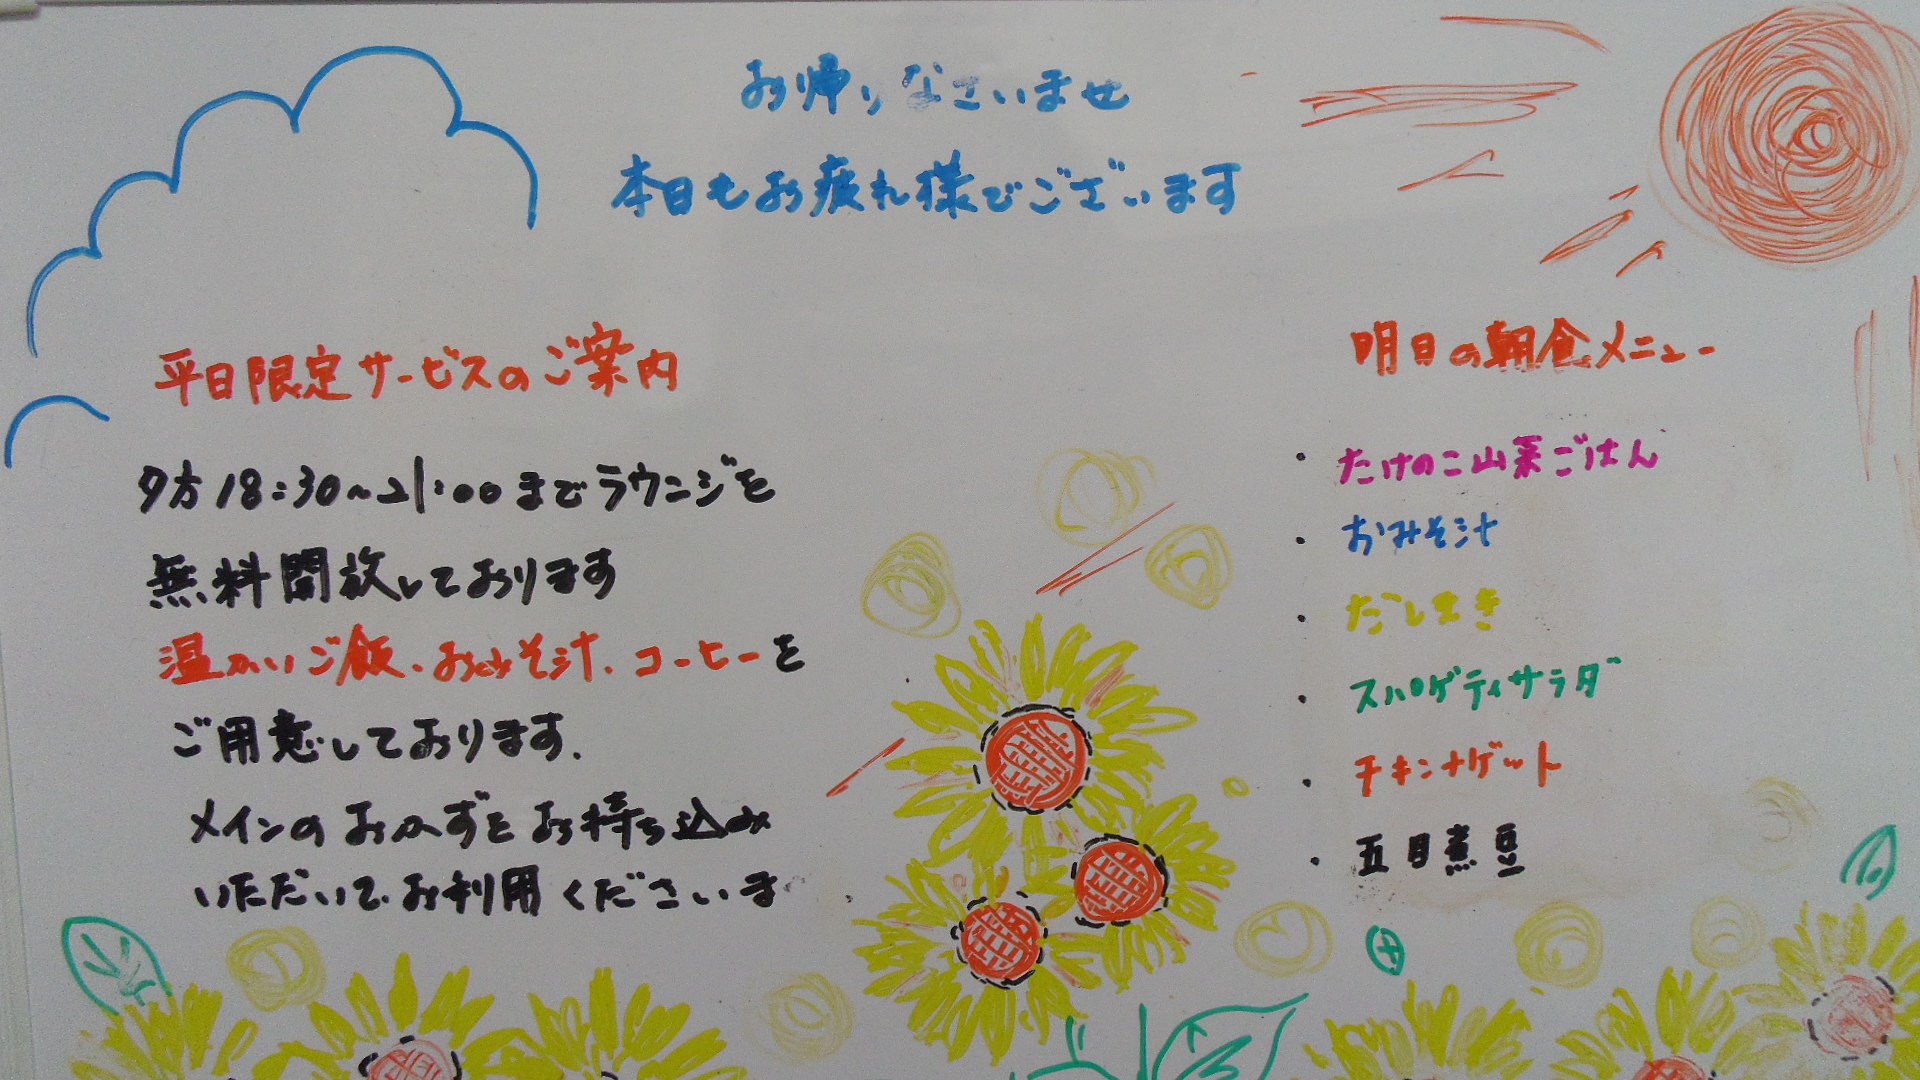 お帰りなさいませ
本日もお疲れ様でございます
平日限定サービスのご案内
夕方18:30~21:00までラウンジを
無料開放しております
温かいご飯、おみそ汁、コーヒーを
ご用意しております.
メインのおかずをお持ち込み
いただいて、お利用くださいま
明日の朝食メニュー
・たけのこ山菜ごはん
・おみそ汁
・だしまき
・スパゲティサラダ
・チキンナゲット
・五目煮豆